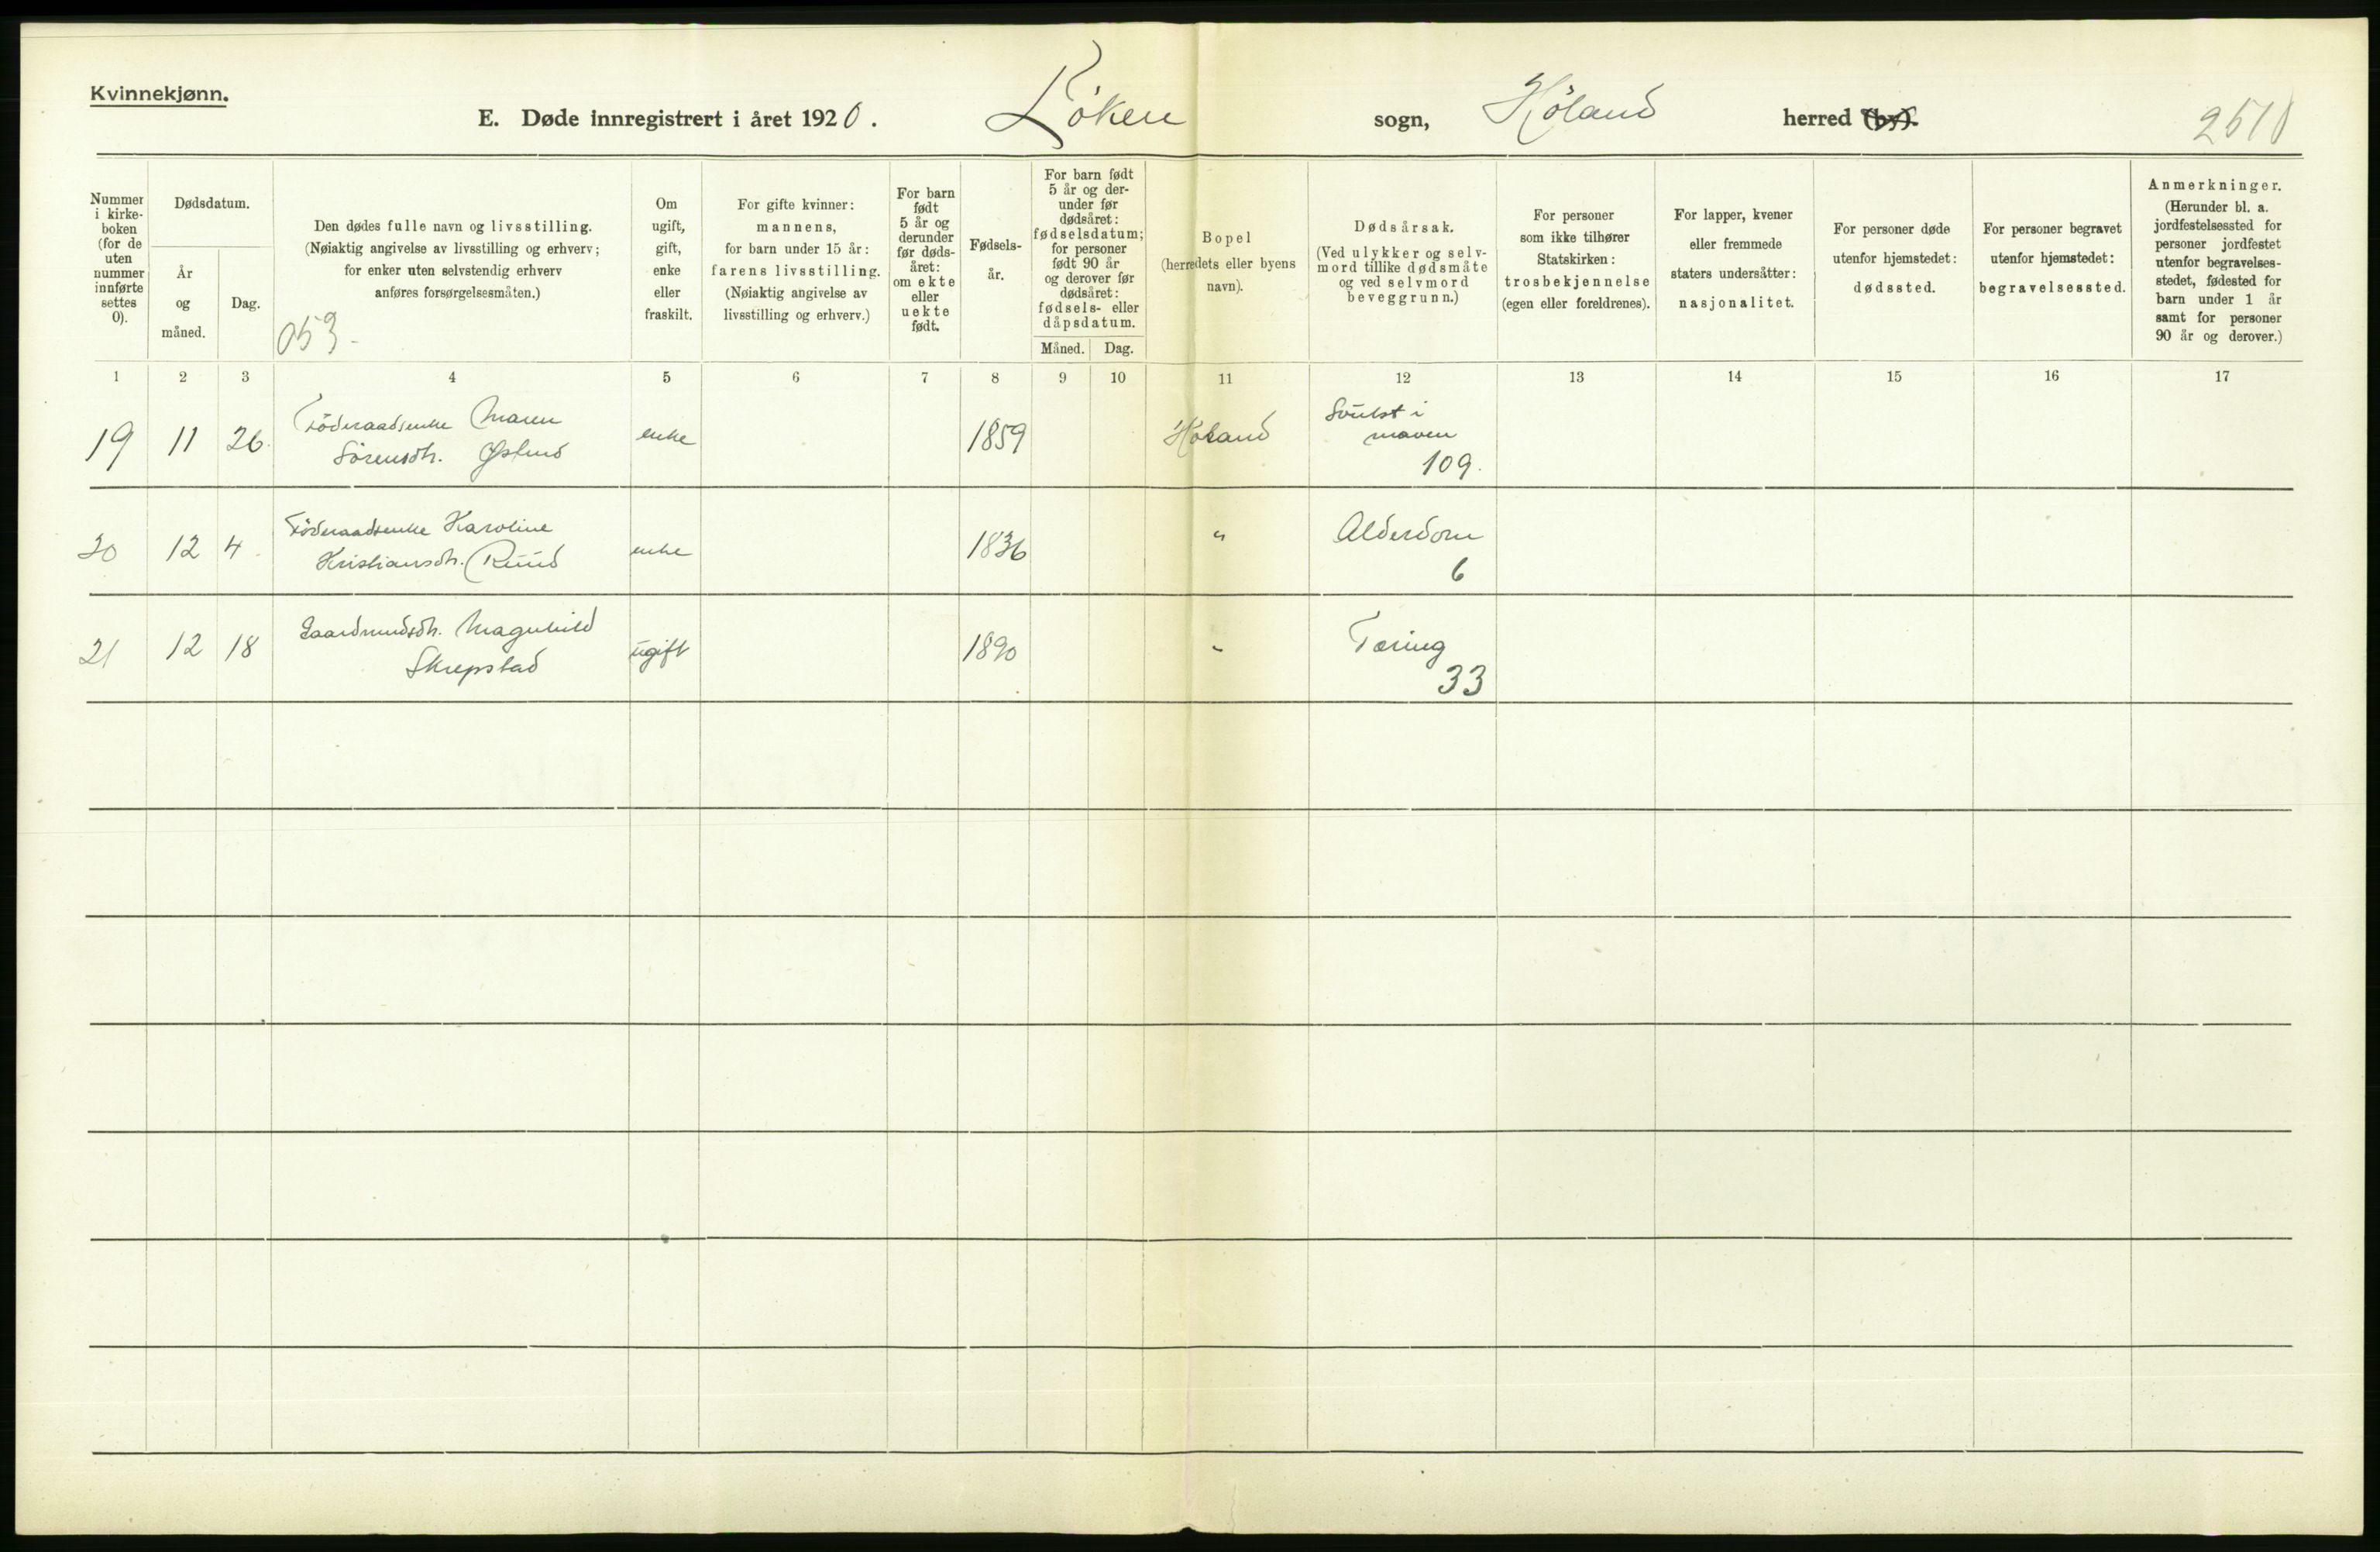 Kvinnekjønn.
E. Døde innregistrert i året 1920. Löken sogn, Höland herred (by). 2510
Nummer i kirke- boken (for de uten nummer innførte settes 0).
Dødsdatum.
År og måned.
Dag.
Den dødes fulle navn og livsstilling.
(Nøiaktig angivelse av livsstilling og erhverv;
for enker uten selvstendig erhverv
anføres forsørgelsesmåten.)
053-
Om ugift, gift, enke eller fraskilt.
For gifte kvinner:
mannens,
for barn under 15 år:
farens livsstilling.
(Nøiaktig angivelse av
livsstilling og erhverv.)
For barn født 5 år og derunder før døds- året: om ekte eller uekte født.
Fødsels- år.
For barn født 5 år og der- under før dødsåret: fødselsdatum; for personer født 90 år og derover før dødsåret: fødsels- eller dåpsdatum.
Måned. Dag.
Bopel
(herredets eller byens
navn).
Dødsårsak.
(Ved ulykker og selv-
mord tillike dødsmåte
og ved selvmord
beveggrunn.)
For personer
som ikke tilhører
Statskirken:
trosbekjennelse
(egen eller foreldrenes).
For lapper, kvener
eller fremmede
staters undersåtter:
nasjonalitet.
For personer døde
utenfor hjemstedet:
dødssted.
For personer begravet
utenfor hjemstedet:
begravelsessted.
Anmerkninger.
(Herunder bl. a.
jordfestelsessted for
personer jordfestet
utenfor begravelses-
stedet, fødested for
barn under 1 år
samt for personer
90 år og derover.)
1 2 3 4 5 6 7 8 9 10 11 12 13 14 15 16 17
19 11 26. Föderaadsenke Maren enke 1859 Höland Svulst i
Sörensdtr. Østmo maven
109.
20 12 4. Föderaadsenke Karoline enke 1836 " Alderdom
Kristiansdtr. Ruud 6
21 12 18 Gaardmandsdtr. Magnhild ugift 1890 " Tæring
Skrepstad 33